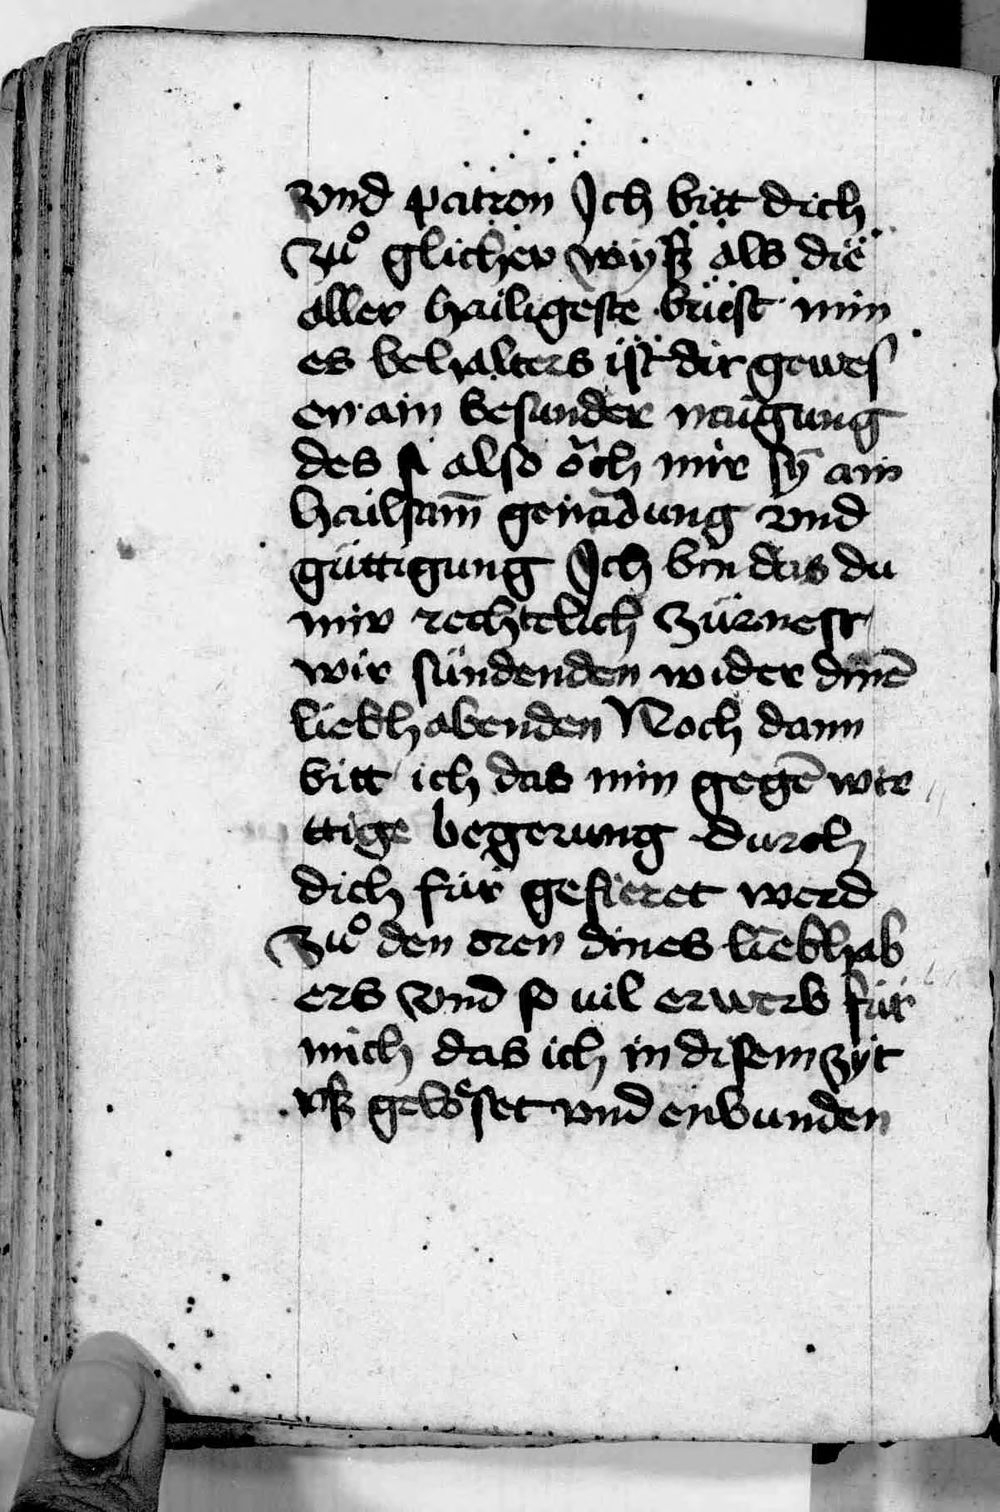 vnd patron Ich bitt dich
zuͦ glicher wyß als die
aller hailigeste brüst min
es behalters ist dir gewes
en ain besunder naigung
des si also och mir sy̅ ain
hailsam̅ genadung vnd
güttigung Ich bin das du
mir rechtelich zürnest
wir sündenden wider dine̅
liebhabenden Noch dann
bitt ich das min gege̅ wer
ttige begerung durch
dich für gefieret werd
zuͦ den oren dines liebhab
ers vnd so uil erwerb für
mich das ich in disem zyt
vß geloͤset vnd enbunden